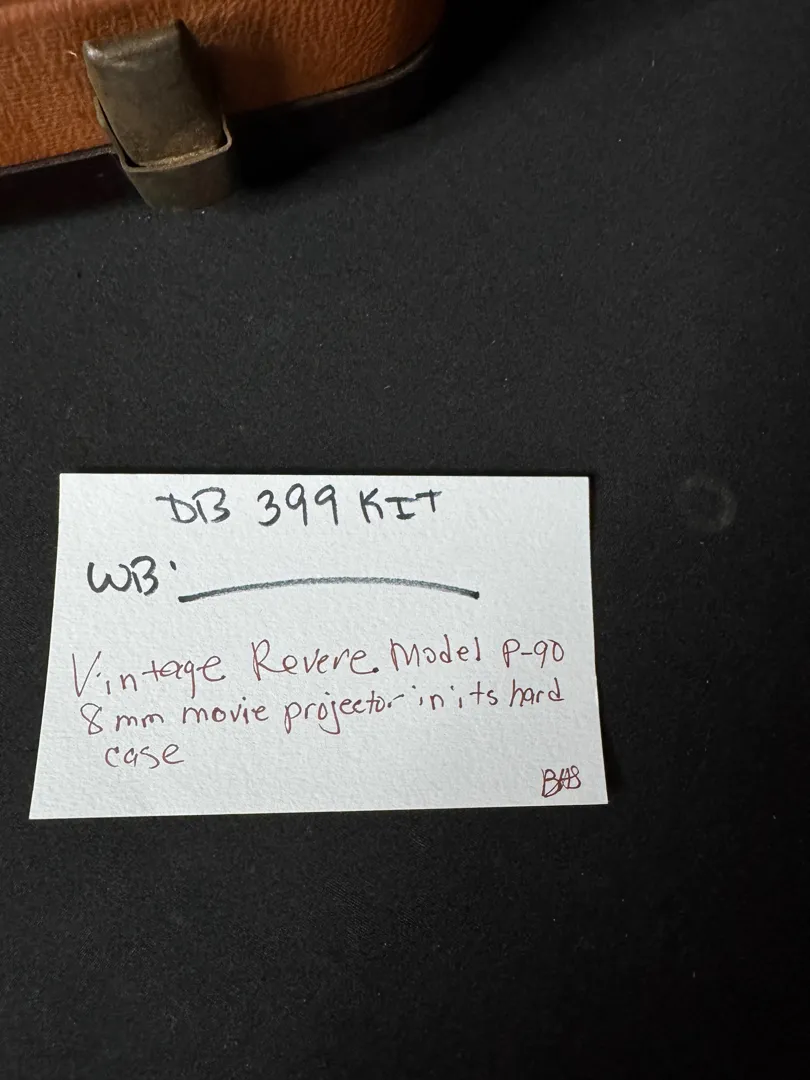 DB 399 KIT
WB:
Vintage Revere Model P-90
8mm movie projector in its hard
case